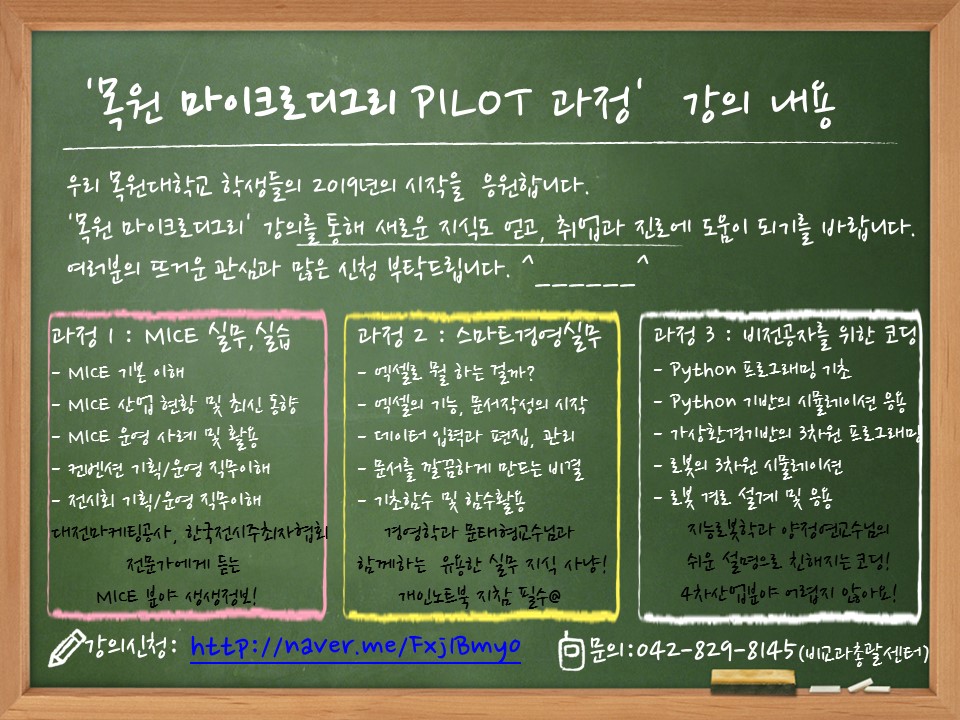 '목원 마이크로디그리 PILOT 과정' 강의 내용
우리 목원대학교 학생들의 2019년의 시작을 응원합니다.
'목원 마이크로디그리' 강의를 통해 새로운 지식도 얻고, 취업과 진로에 도움이 되기를 바랍니다.
여러분의 뜨거운 관심과 많은 신청 부탁드립니다. ^______^
과정 1 : MICE 실무,실습
- MICE 기본 이해
- MICE 산업 현황 및 최신 동향
- MICE 운영 사례 및 활용
- 컨벤션 기획/운영 직무이해
- 전시회 기획/운영 직무이해
대전마케팅공사, 한국전시주최자협회
전문가에게 듣는
MICE 분야 생생정보!
과정 2 : 스마트경영실무
- 엑셀로 뭘 하는 걸까?
- 엑셀의 기능, 문서작성의 시작
- 데이터 입력과 편집, 관리
- 문서를 깔끔하게 만드는 비결
- 기초함수 및 함수활용
경영학과 문태형교수님과
함께하는 유용한 실무 지식 사냥!
개인노트북 지참 필수@
과정 3 : 비전공자를 위한 코딩
- Python 프로그래밍 기초
- Python 기반의 시뮬레이션 응용
- 가상환경기반의 3차원 프로그래밍
- 로봇의 3차원 시뮬레이션
- 로봇 경로 설계 및 응용
지능로봇학과 양정연교수님의
쉬운 설명으로 친해지는 코딩!
4차산업분야 어렵지 않아요!
강의신청: http://naver.me/FxjIBmyo
문의:042-829-8145(비교과총괄센터)